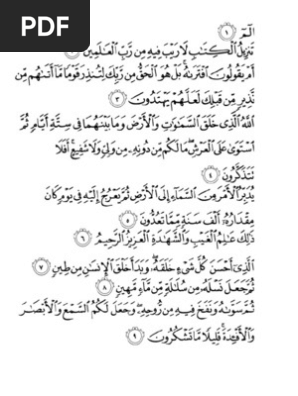 PDF
الٓمٓ ١
تَنزِيلُ ٱلْكِتَٰبِ لَا رَيْبَ فِيهِ مِن رَّبِّ ٱلْعَٰلَمِينَ
أَمْ يَقُولُونَ ٱفْتَرَىٰهُ ۚ بَلْ هُوَ ٱلْحَقُّ مِن رَّبِّكَ لِتُنذِرَ قَوْمًا مَّآ أَتَىٰهُم مِّن
نَّذِيرٍ مِّن قَبْلِكَ لَعَلَّهُمْ يَهْتَدُونَ ٣
ٱللَّهُ ٱلَّذِى خَلَقَ ٱلسَّمَٰوَٰتِ وَٱلْأَرْضَ وَمَا بَيْنَهُمَا فِى سِتَّةِ أَيَّامٍ ثُمَّ
ٱسْتَوَىٰ عَلَى ٱلْعَرْشِ ۖ مَا لَكُم مِّن دُونِهِۦ مِن وَلِىٍّ وَلَا شَفِيعٍ ۚ أَفَلَا
تَتَذَكَّرُونَ ٤
يُدَبِّرُ ٱلْأَمْرَ مِنَ ٱلسَّمَآءِ إِلَى ٱلْأَرْضِ ثُمَّ يَعْرُجُ إِلَيْهِ فِى يَوْمٍ كَانَ
مِقْدَارُهُۥٓ أَلْفَ سَنَةٍ مِّمَّا تَعُدُّونَ ٥
ذَٰلِكَ عَٰلِمُ ٱلْغَيْبِ وَٱلشَّهَٰدَةِ ٱلْعَزِيزُ ٱلرَّحِيمُ ٦
ٱلَّذِىٓ أَحْسَنَ كُلَّ شَىْءٍ خَلَقَهُۥ ۖ وَبَدَأَ خَلْقَ ٱلْإِنسَٰنِ مِن طِينٍ ٧
ثُمَّ جَعَلَ نَسْلَهُۥ مِن سُلَٰلَةٍ مِّن مَّآءٍ مَّهِينٍ ٨
ثُمَّ سَوَّىٰهُ وَنَفَخَ فِيهِ مِن رُّوحِهِۦ ۖ وَجَعَلَ لَكُمُ ٱلسَّمْعَ وَٱلْأَبْصَٰرَ
وَٱلْأَفْـِٔدَةَ ۚ قَلِيلًا مَّا تَشْكُرُونَ ٩